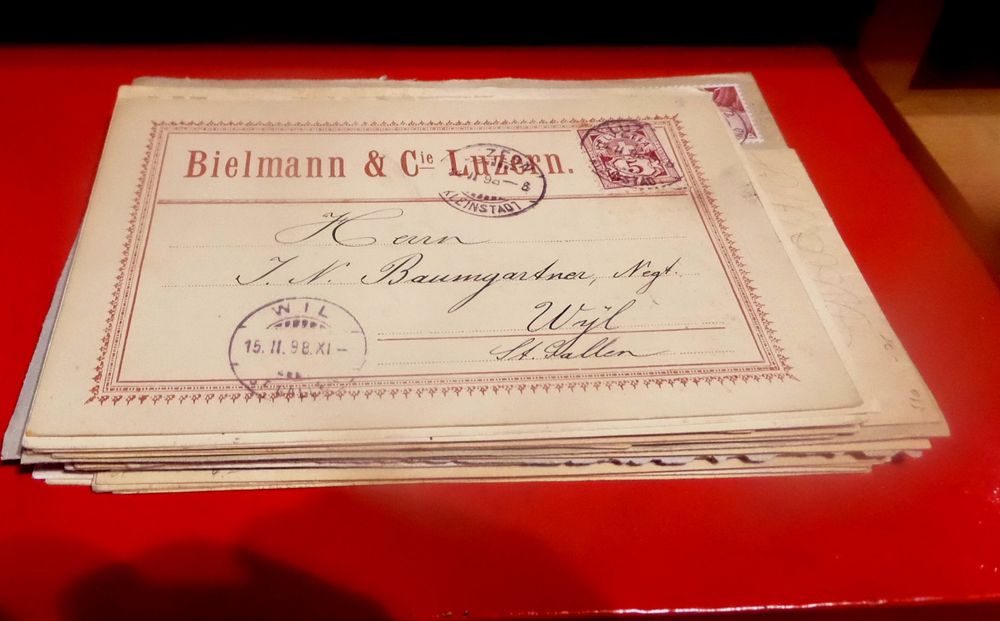 Bielmann & Cie Luzern.
5
KLEINSTADT
Herrn
J. N. Baumgartner, Negt.
Wyl
St. Gallen
WIL
15. II. 98. XI-